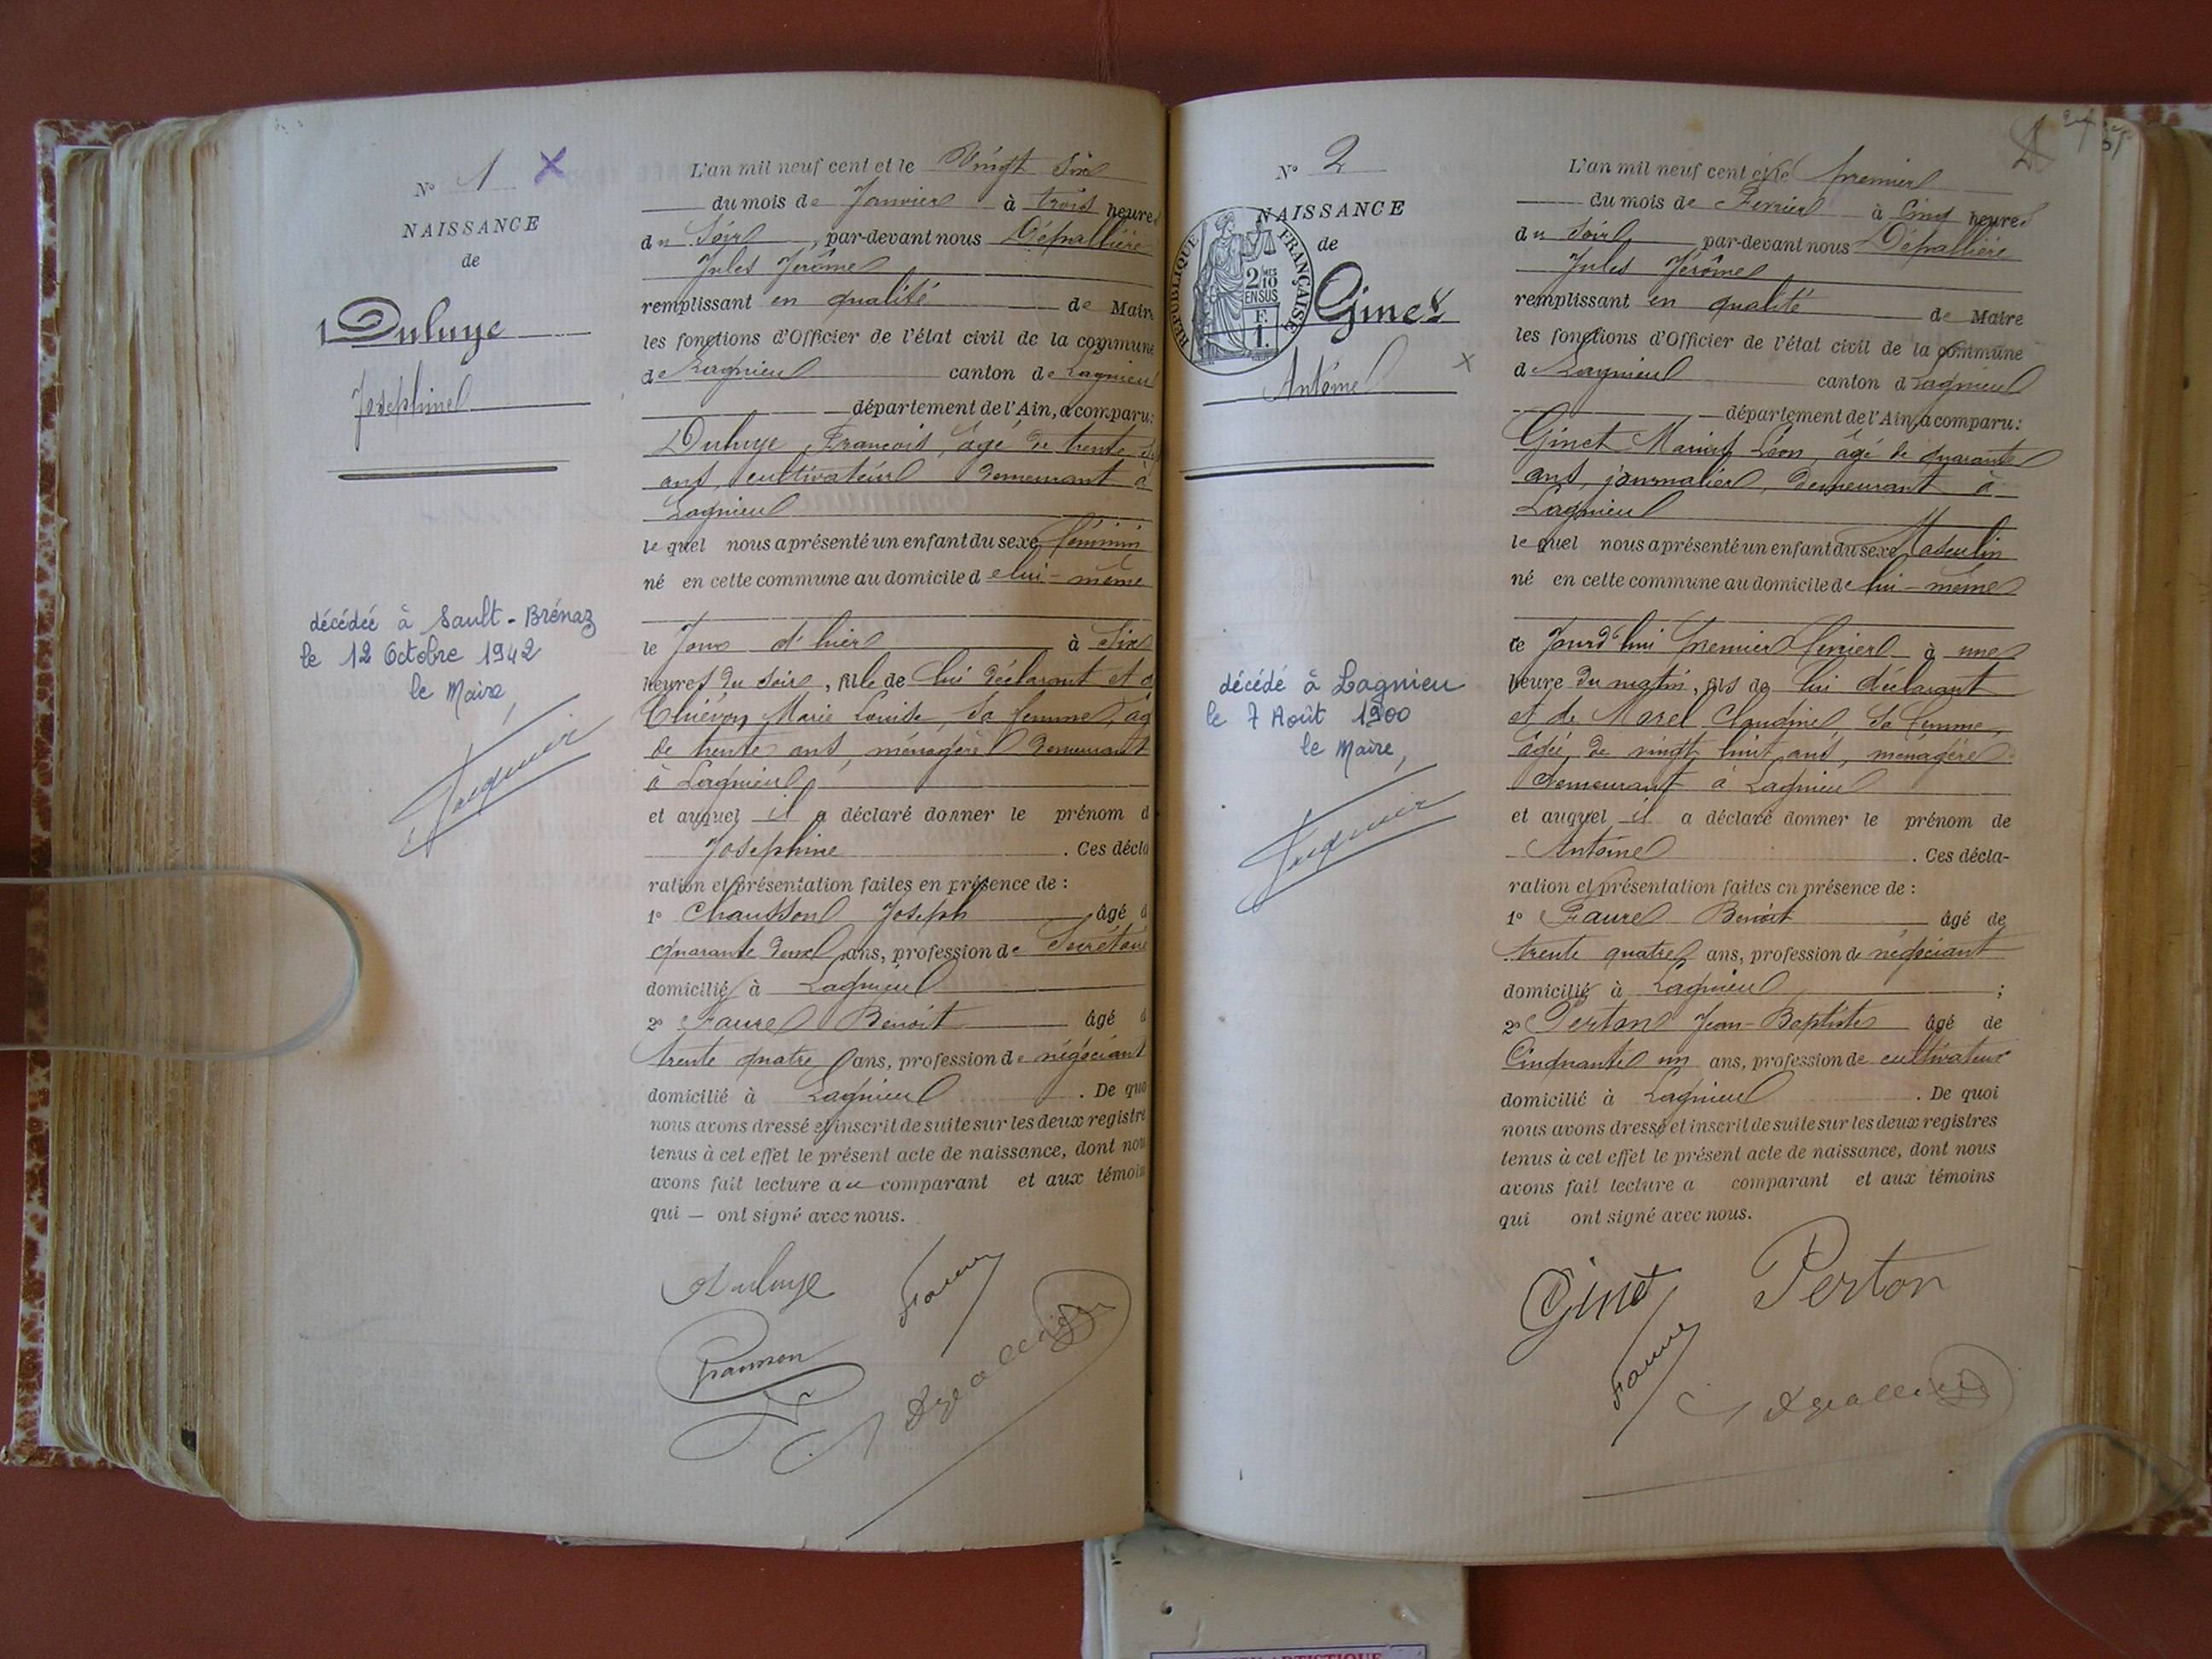 N° 1 X
NAISSANCE
de
Duluye
Josephine
décédée à Sault-Brénaz
le 12 Octobre 1942
le Maire,
Jacquier
L'an mil neuf cent et le Vingt Six
du mois de Janvier à trois heures
du Soir, par-devant nous Dépallière
Jules Jérôme
remplissant en qualité de Maire
les fonctions d'Officier de l'état civil de la commune
de Lagnieu canton de Lagnieu
département de l'Ain, a comparu:
Duluye, François, âgé de trente
ans, cultivateur demeurant à
Lagnieu
lequel nous a présenté un enfant du sexe féminin
né en cette commune au domicile de lui-même
le Jour d'hier à Six
heures du Soir, fille de lui déclarant et d
Marie Louise, sa femme, âg
de trente ans, ménagère demeurant
à Lagnieu
et auquel il a déclaré donner le prénom d
Josephine . Ces décla
ration et présentation faites en présence de :
1° Chausson Joseph âgé d
quarante deux ans, profession de Secrétaire
domicilié à Lagnieu
2° Faure Benoit âgé d
trente quatre ans, profession de négociant
domicilié à Lagnieu . De quo
nous avons dressé et inscrit de suite sur les deux registre
tenus à cet effet le présent acte de naissance, dont nou
avons fait lecture au comparant et aux témoin
qui — ont signé avec nous.
Duluye Faure
N° 2
NAISSANCE
de
RÉPUBLIQUE FRANÇAISE
2/10 MES
EN SUS
F.
1.
Ginet
Antoine
x
décédé à Lagnieu
le 7 Août 1900
le Maire,
Jacquier
L'an mil neuf cent et le premier
du mois de Février à Cinq heures
du Soir par-devant nous Dépallière
Jules Jérôme
remplissant en qualité de Maire
les fonctions d'Officier de l'état civil de la commune
de Lagnieu canton d Lagnieu
département de l'Ain, a comparu:
Ginet Marius Léon, âgé de quarante
ans, journalier, demeurant à
Lagnieu
lequel nous a présenté un enfant du sexe Masculin
né en cette commune au domicile de lui-même
ce Jourd'hui premier février à une
heure du matin, fils de lui déclarant
et de Morel Claudine, sa femme,
âgée de vingt huit ans, ménagère
demeurant à Lagnieu
et auquel il a déclaré donner le prénom de
Antoine . Ces décla-
ration et présentation faites en présence de :
1° Faure Benoit âgé de
trente quatre ans, profession de négociant
domicilié à Lagnieu ;
2° Perton Jean-Baptiste âgé de
Cinquante un ans, profession de cultivateur
domicilié à Lagnieu . De quoi
nous avons dressé et inscrit de suite sur les deux registres
tenus à cet effet le présent acte de naissance, dont nous
avons fait lecture a comparant et aux témoins
qui ont signé avec nous.
Ginet Perton
Faure